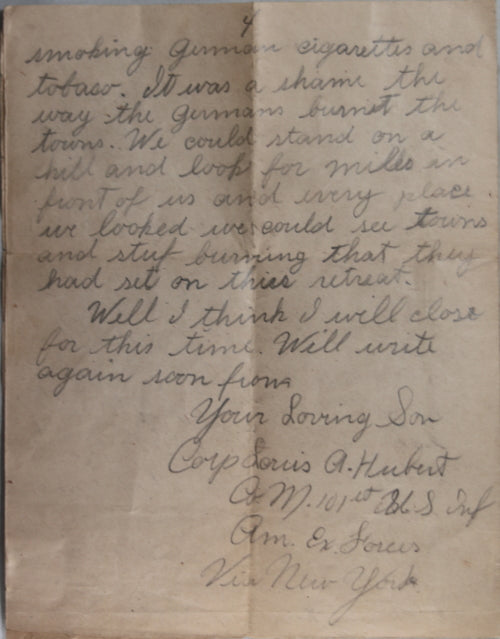 4
smoking German cigarettes and
tobaco. It was a shame the
way the Germans burnet the
towns. We could stand on a
hill and look for miles in
front of us and every place
we looked we could see towns
and stuf burning that they
had set on thier retreat.
Well I think I will close
for this time. Will write
again soon from
Your Loving Son
Corp Louis A. Hubert
Co M. 101st U. S. Inf
Am. Ex. Forces
Via New York